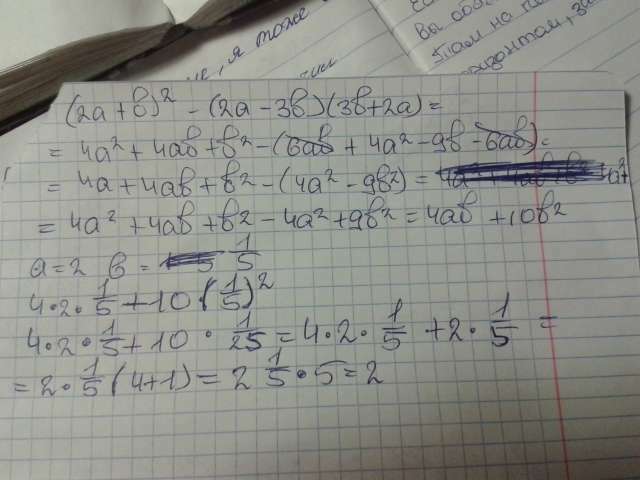 , я тоже
Вы
(2a+b)² - (2a-3b)(3b+2a)=
= 4a²+4ab+b²-(6ab+4a²-9b-6ab)=
= 4a+4ab+b²-(4a²-9b²)=
= 4a²+4ab+b²-4a²+9b²=4ab+10b²
a=2 b= 1/5
4·2·1/5+10·(1/5)²
4·2·1/5+10·1/25=4·2·1/5+2·1/5=
=2·1/5(4+1)=2 1/5·5=2